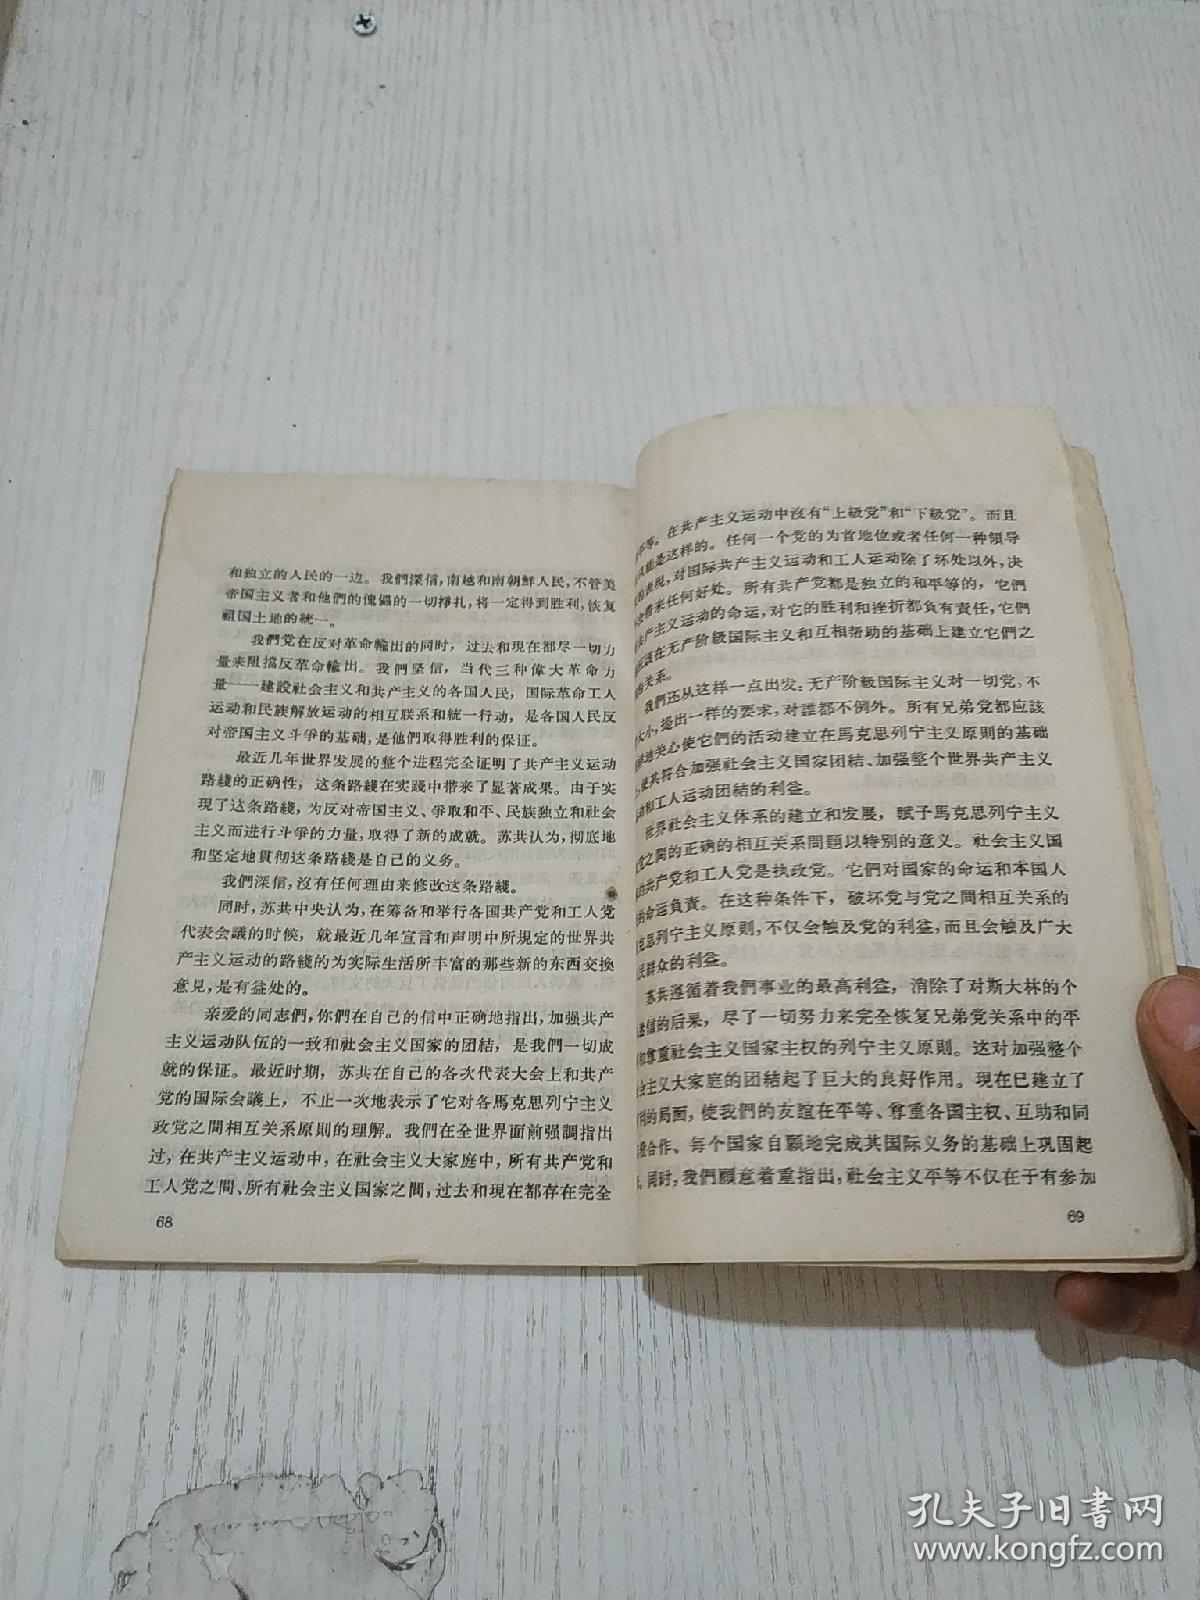 和独立的人民的一边。我們深信,南越和南朝鮮人民,不管美
帝国主义者和他們的傀儡的一切掙扎,将一定得到胜利,恢复
祖国土地的統一。
我們党在反对革命輸出的同时，过去和現在都尽一切力
量来阻擋反革命輸出。我們坚信，当代三种偉大革命力
量——建設社会主义和共产主义的各国人民，国际革命工人
运动和民族解放运动的相互联系和統一行动，是各国人民反
对帝国主义斗爭的基础,是他們取得胜利的保证。
最近几年世界发展的整个进程完全证明了共产主义运动
路綫的正确性，这条路綫在实践中带来了显著成果。由于实
現了这条路綫，为反对帝国主义、爭取和平、民族独立和社会
主义而进行斗爭的力量,取得了新的成就。苏共认为,彻底地
和坚定地貫彻这条路綫是自己的义务。
我們深信,沒有任何理由来修改这条路綫。
同时,苏共中央认为,在筹备和举行各国共产党和工人党
代表会議的时候，就最近几年宣言和声明中所規定的世界共
产主义运动的路綫的为实际生活所丰富的那些新的东西交換
意見,是有益处的。
亲爱的同志們,你們在自己的信中正确地指出,加强共产
主义运动队伍的一致和社会主义国家的团結，是我們一切成
就的保证。最近时期，苏共在自己的各次代表大会上和共产
党的国际会議上，不止一次地表示了它对各馬克思列宁主义
政党之間相互关系原則的理解。我們在全世界面前强調指出
过，在共产主义运动中，在社会主义大家庭中，所有共产党和
工人党之間、所有社会主义国家之間,过去和現在都存在完全
68
等。在共产主义运动中沒有“上級党”和“下級党”。而且
能是这样的。任何一个党的为首地位或者任何一种領导
的表現,对国际共产主义运动和工人运动除了坏处以外,决
会带来任何好处。所有共产党都是独立的和平等的，它們
共产主义运动的命运，对它的胜利和挫折都負有責任，它們
应該在无产阶級国际主义和互相帮助的基础上建立它們之
的关系。
我們还从这样一点出发：无产阶級国际主义对一切党，不
大小，提出一样的要求，对誰都不例外。所有兄弟党都应該
地关心使它們的活动建立在馬克思列宁主义原則的基础
使其符合加强社会主义国家团結、加强整个世界共产主义
动和工人运动团結的利益。
世界社会主义体系的建立和发展，賦予馬克思列宁主义
党之間的正确的相互关系問題以特別的意义。社会主义国
的共产党和工人党是执政党。它們对国家的命运和本国人
的命运負責。在这种条件下，破坏党与党之間相互关系的
克思列宁主义原則,不仅会触及党的利益,而且会触及广大
民群众的利益。
苏共遵循着我們事业的最高利益，消除了对斯大林的个
迷信的后果，尽了一切努力来完全恢复兄弟党关系中的平
和尊重社会主义国家主权的列宁主义原則。这对加强整个
会主义大家庭的团結起了巨大的良好作用。現在已建立了
利的局面，使我們的友誼在平等、尊重各国主权、互助和同
合作、每个国家自願地完成其国际义务的基础上巩固起
同时,我們願意着重指出,社会主义平等不仅在于有参加
69
孔夫子旧書网
www.kongfz.com